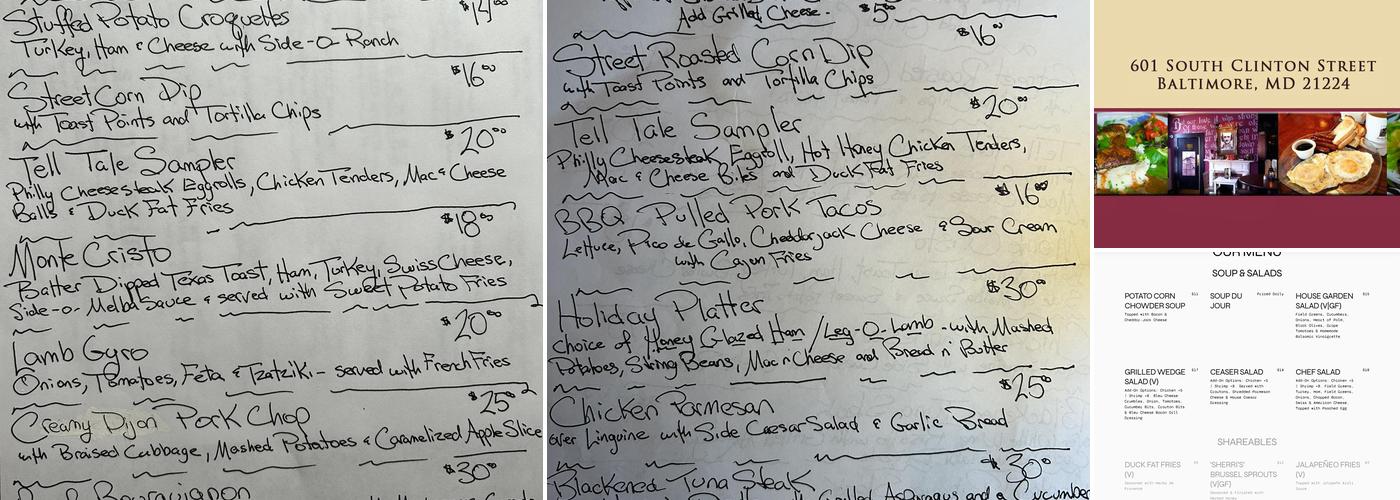 Stuffed Potato Croquettes
$14⁰⁰
Turkey, Ham & Cheese with Side-O-Ranch
$16⁰⁰
Street Corn Dip
with Toast Points and Tortilla Chips
$20⁰⁰
Tell Tale Sampler
Philly Cheesesteak Eggrolls, Chicken Tenders, Mac & Cheese
Balls & Duck Fat Fries
$18⁰⁰
Monte Cristo
Batter Dipped Texas Toast, Ham, Turkey, Swiss Cheese,
Side-O-Melba Sauce & served with Sweet Potato Fries
$20⁰⁰
Lamb Gyro
Onions, Tomatoes, Feta & Tzatziki - served with French Fries
$25⁰⁰
Creamy Dijon Pork Chop
with Braised Cabbage, Mashed Potatoes & Caramelized Apple Slice
$30⁰⁰
Add Grilled Cheese - $5⁰⁰
$16⁰⁰
Street Roasted Corn Dip
with Toast Points and Tortilla Chips
$20⁰⁰
Tell Tale Sampler
Philly Cheesesteak Eggroll, Hot Honey Chicken Tenders,
Mac & Cheese Bites and Duck Fat Fries
$16⁰⁰
BBQ Pulled Pork Tacos
Lettuce, Pico de Gallo, Cheddarjack Cheese & Sour Cream
with Cajun Fries
$30⁰⁰
Holiday Platter
Choice of Honey Glazed Ham / Leg-O-Lamb - with Mashed
Potatoes, String Beans, Mac n' Cheese and Bread n' Butter
$25⁰⁰
Chicken Parmesan
over Linguine with Side Caesar Salad & Garlic Bread
$30⁰⁰
Blackened Tuna Steak
Grilled Asparagus and a Cucumber
601 South Clinton Street
Baltimore, MD 21224
OUR MENU
SOUP & SALADS
POTATO CORN CHOWDER SOUP $11
Topped with Bacon &
Cheddar Jack Cheese
SOUP DU JOUR Priced Daily
HOUSE GARDEN SALAD (V|GF) $15
Field Greens, Cucumbers,
Onions, Heart of Palm,
Black Olives, Grape
Tomatoes & Homemade
Balsamic Vinaigrette
GRILLED WEDGE SALAD (V) $17
Add-On Options: Chicken +5
| Shrimp +8 Bleu Cheese
Crumbles, Onion, Tomatoes,
Cucumber Bits, Crouton Bits
& Bleu Cheese Bacon Dill
Dressing
CEASER SALAD $14
Add-On Options: Chicken +5
| Shrimp +8 Served with
Croutons, Shredded Parmesan
Cheese & House Caesar
Dressing
CHEF SALAD $18
Add-On Options: Chicken +5
| Shrimp +8 Field Greens,
Turkey, Ham, Field Greens,
Onions, Chopped Bacon,
Swiss & American Cheese,
Topped with Poached Egg
SHAREABLES
DUCK FAT FRIES (V)
Seasoned with Herbs de
Provence
'SHERRI'S' BRUSSEL SPROUTS (V|GF)
JALAPEÑO FRIES (V)
Topped with Jalapeño Aioli
Sauce